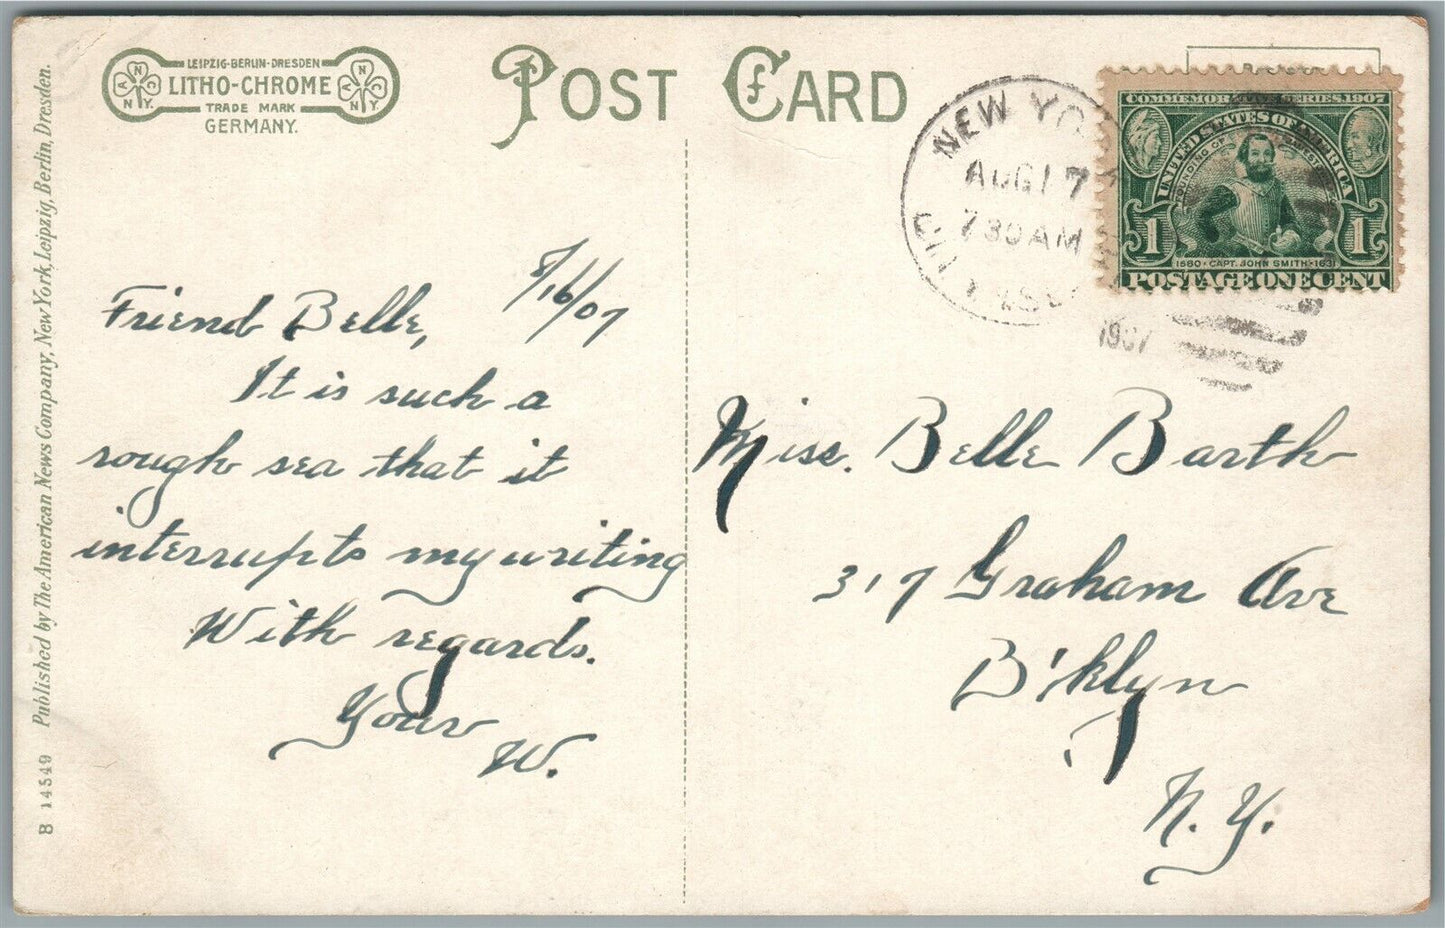 LEIPZIG-BERLIN-DRESDEN
LITHO-CHROME
TRADE MARK
GERMANY.
A N C N.Y.
A N C N.Y.
POST CARD
NEW YO
AUG 17
7 30 AM
1907
COMMEMORATIVE SERIES 1907
UNITED STATES OF AMERICA
FOUNDING OF
1
1
1580 · CAPT. JOHN SMITH · 1631
POSTAGE ONE CENT
8/16/07
Friend Belle,
It is such a
rough sea that it
interrupts my writing
With regards.
Your
W.
Miss. Belle Barth
317 Graham Ave
B'klyn
N. Y.
B 14549 Published by The American News Company, New York, Leipzig, Berlin, Dresden.